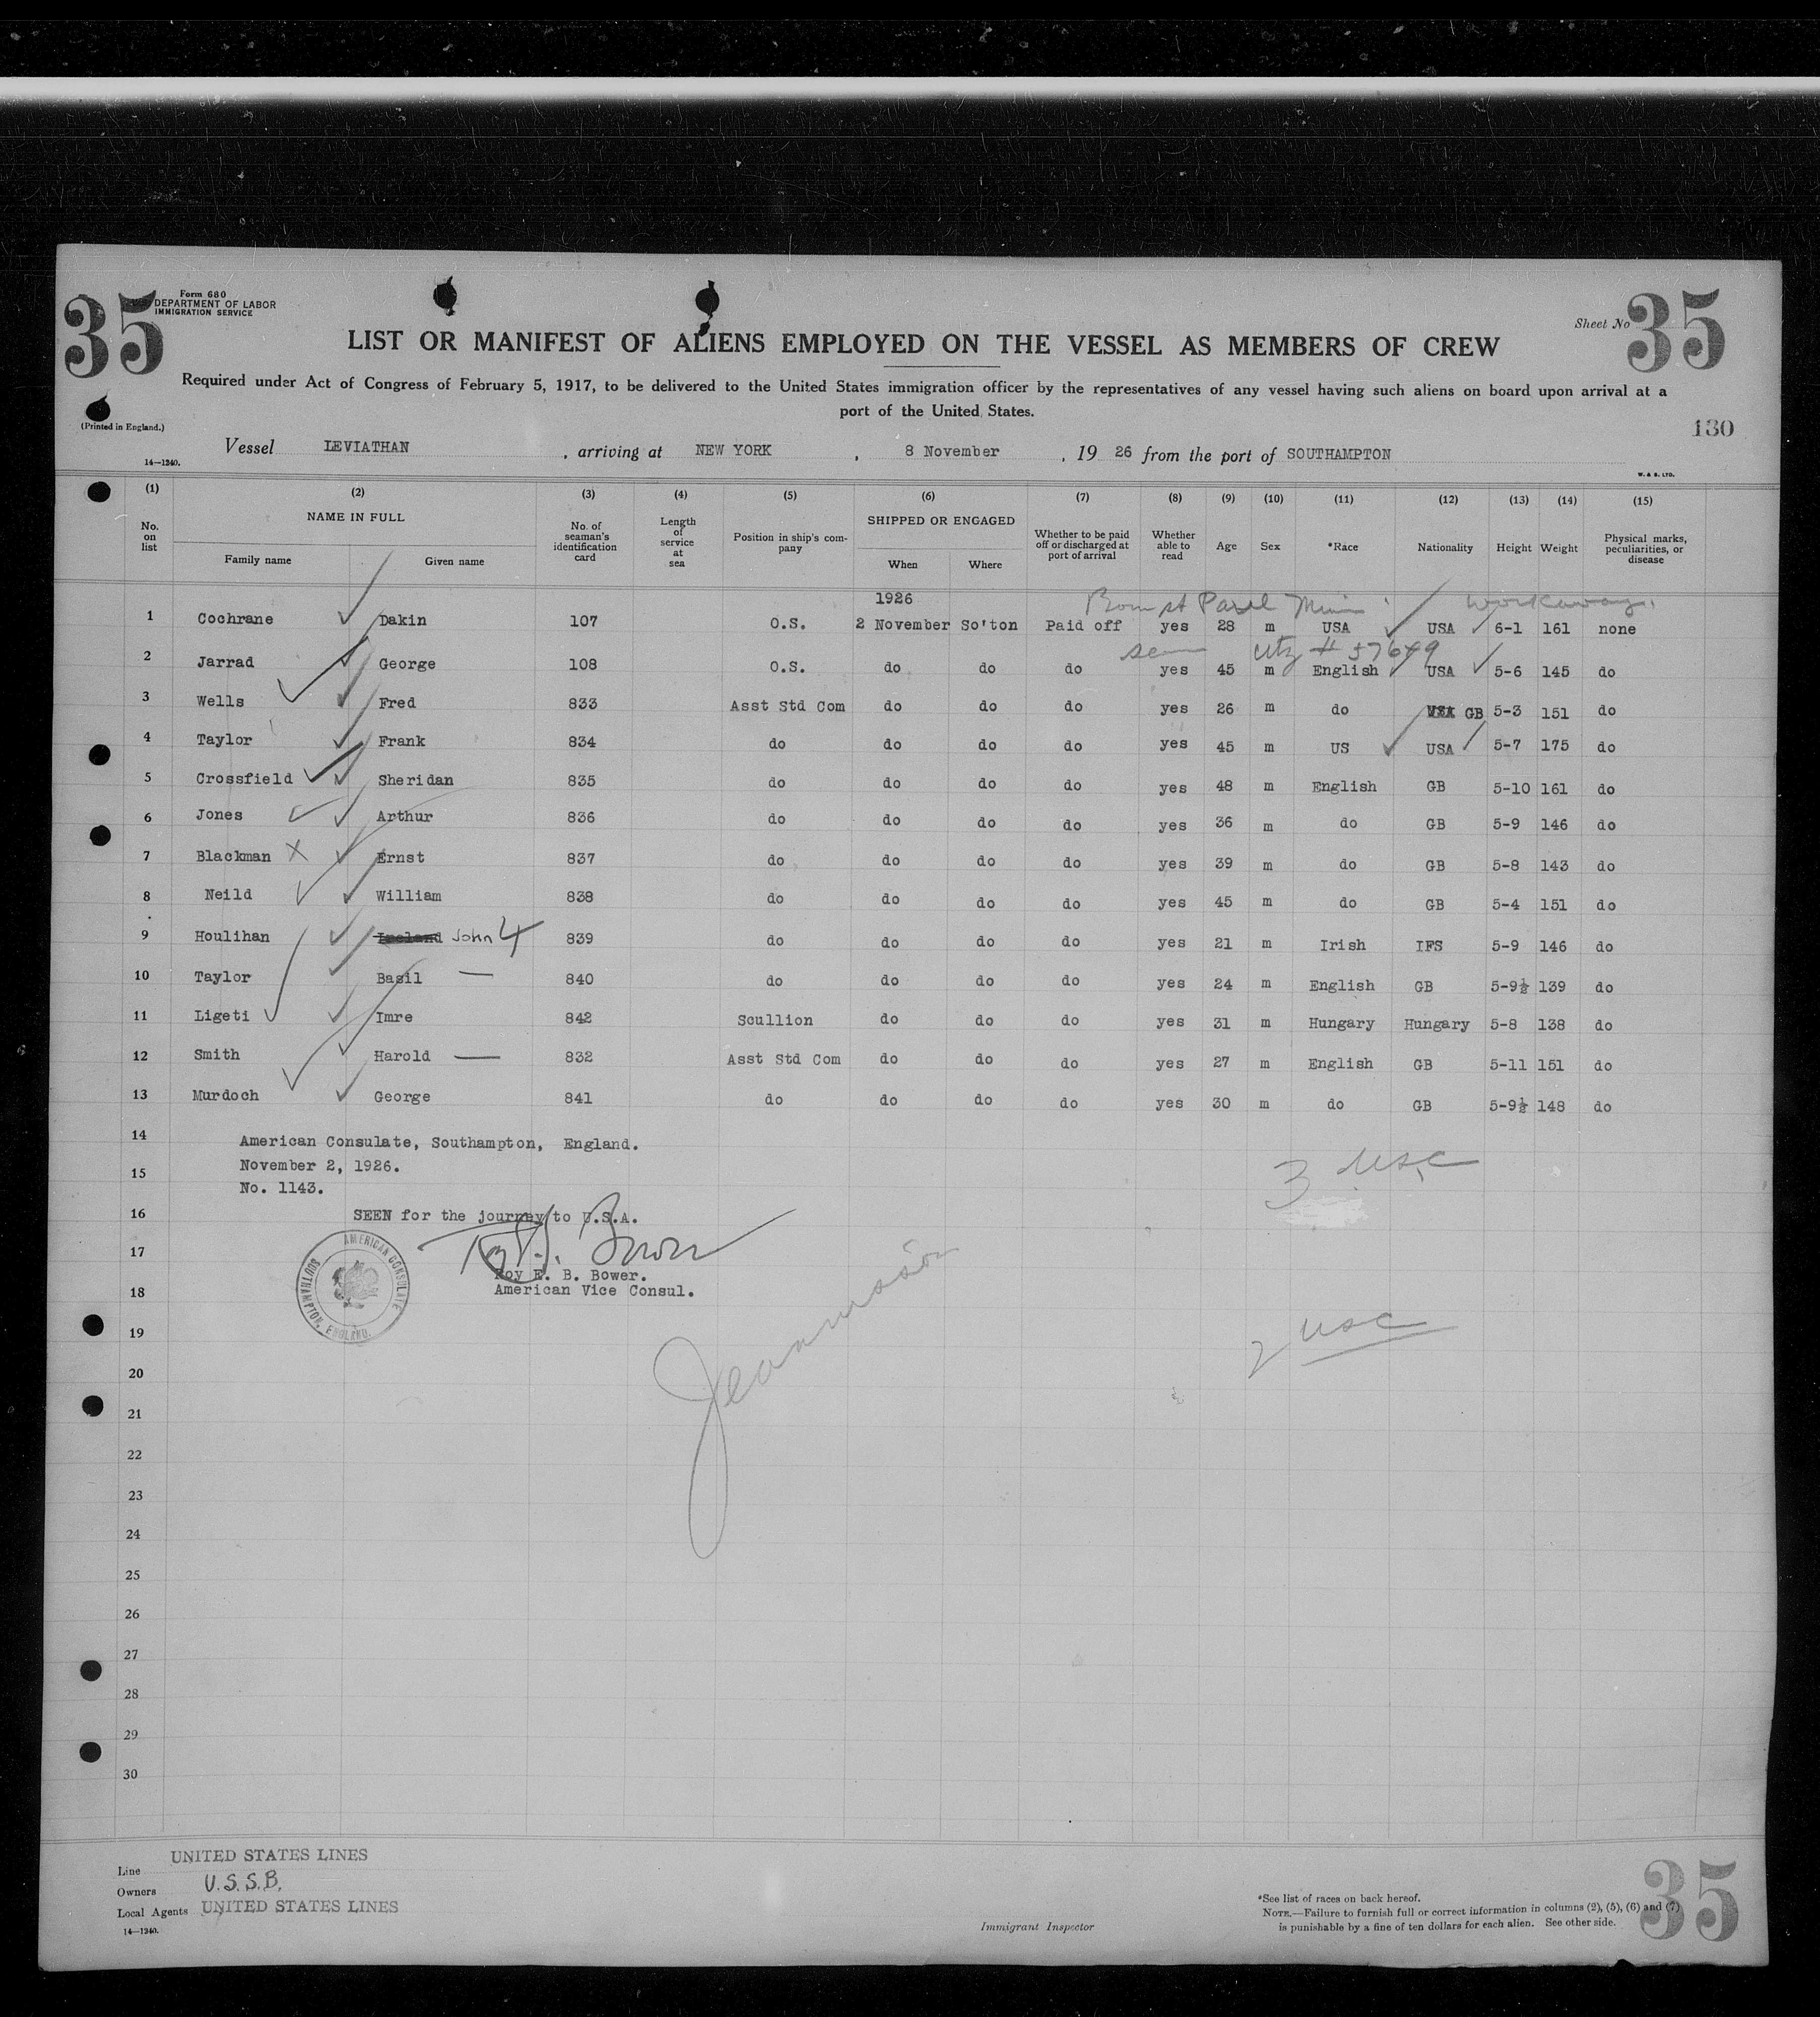 35
Form 680
U.S. DEPARTMENT OF LABOR
IMMIGRATION SERVICE
Sheet No 35
LIST OR MANIFEST OF ALIENS EMPLOYED ON THE VESSEL AS MEMBERS OF CREW
Required under Act of Congress of February 5, 1917, to be delivered to the United States immigration officer by the representatives of any vessel having such aliens on board upon arrival at a
port of the United States.
(Printed in England.)
130
Vessel LEVIATHAN , arriving at NEW YORK , 8 November , 19 26 from the port of SOUTHAMPTON
14—1240.
W. & S. LTD.
(1) (2) (3) (4) (5) (6) (7) (8) (9) (10) (11) (12) (13) (14) (15)
No. on list NAME IN FULL Family name Given name No. of seaman's identification card Length of service at sea Position in ship's com-pany SHIPPED OR ENGAGED When Where Whether to be paid off or discharged at port of arrival Whether able to read Age Sex *Race Nationality Height Weight Physical marks, peculiarities, or disease
1926 Born St Paul Minn workaway
1 Cochrane Dakin 107 O.S. 2 November So'ton Paid off yes 28 m USA USA 6-1 161 none
# 57649
2 Jarrad George 108 O.S. do do do yes 45 m English USA 5-6 145 do
3 Wells Fred 833 Asst Std Com do do do yes 26 m do USA GB 5-3 151 do
4 Taylor Frank 834 do do do do yes 45 m US USA 5-7 175 do
5 Crossfield Sheridan 835 do do do do yes 48 m English GB 5-10 161 do
6 Jones Arthur 836 do do do do yes 36 m do GB 5-9 146 do
7 Blackman Ernst 837 do do do do yes 39 m do GB 5-8 143 do
8 Neild William 838 do do do do yes 45 m do GB 5-4 151 do
9 Houlihan Ireland John 4 839 do do do do yes 21 m Irish IFS 5-9 146 do
10 Taylor Basil — 840 do do do do yes 24 m English GB 5-9½ 139 do
11 Ligeti Imre 842 Scullion do do do yes 31 m Hungary Hungary 5-8 138 do
12 Smith Harold — 832 Asst Std Com do do do yes 27 m English GB 5-11 151 do
13 Murdoch George 841 do do do do yes 30 m do GB 5-9½ 148 do
14 American Consulate, Southampton, England.
November 2, 1926.
15
No. 1143.
3 USC
16 SEEN for the journey to U.S.A.
17
Roy E. B. Bower.
18 American Vice Consul.
AMERICAN CONSULATE
SOUTHAMPTON, ENGLAND.
19
2 USC
20
21
22
23
24
25
26
27
28
29
30
Line UNITED STATES LINES
Owners U.S.S.B.
Local Agents UNITED STATES LINES
14—1240.
Immigrant Inspector
*See list of races on back hereof.
NOTE.—Failure to furnish full or correct information in columns (2), (5), (6) and (7)
is punishable by a fine of ten dollars for each alien. See other side.
35